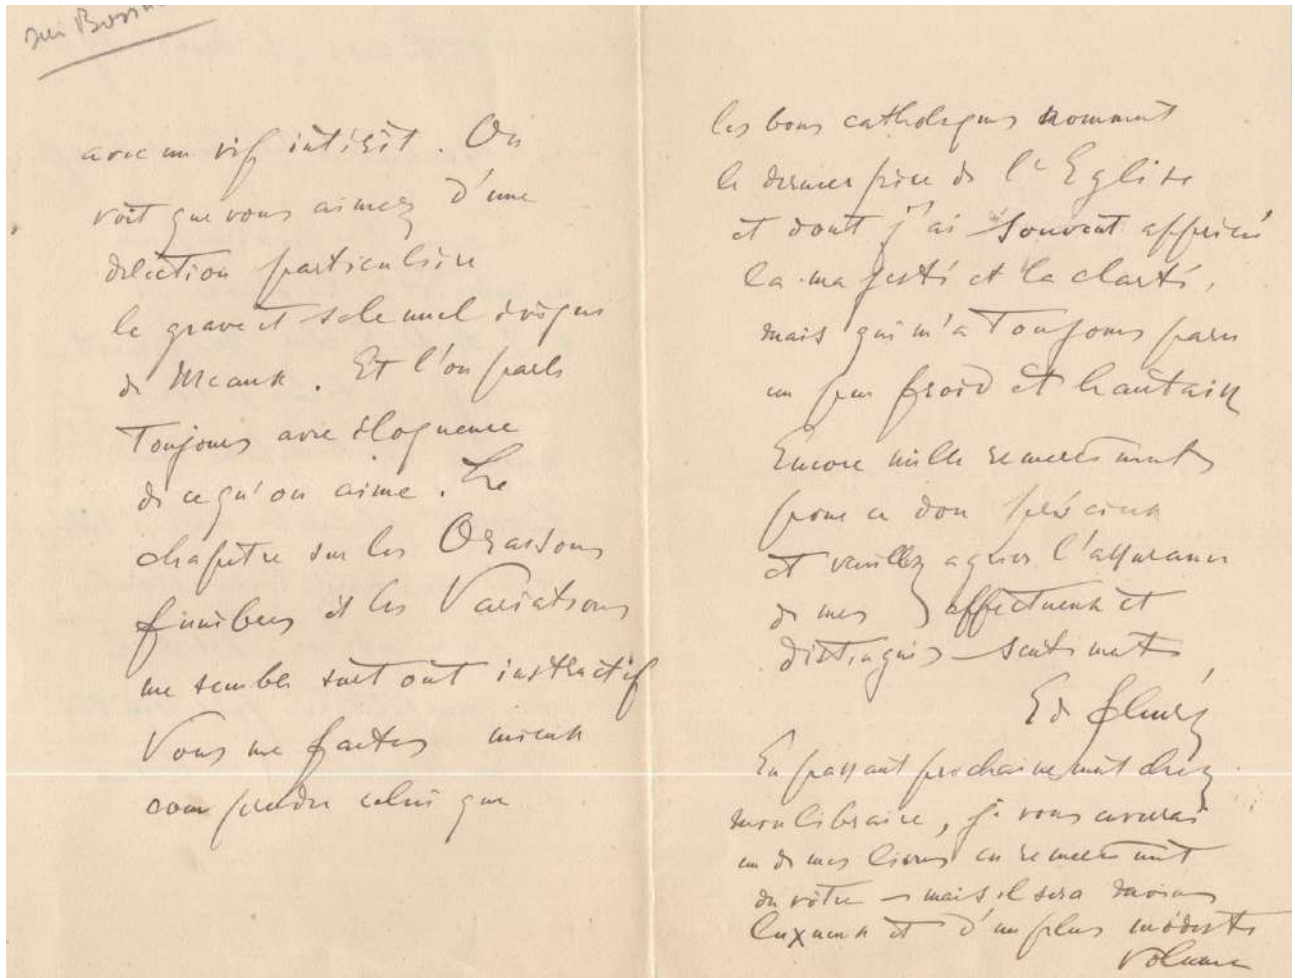 sur Bossu
avec un vif intérêt. On
voit que vous aimez d'une
dilection particulière
le grave et solennel évêque
de Meaux. Et l'on parle
toujours avec éloquence
de ce qu'on aime. Le
chapitre sur les Oraisons
funèbres et les Variations
me semble surtout instructif
Vous me faites mieux
comprendre celui que
les bons catholiques nomment
le dernier père de l'Eglise
et dont j'ai souvent apprécié
la majesté et la clarté,
mais qui m'a toujours paru
un peu froid et hautain
Encore mille remerciements
pour ce don précieux
et veuillez agréer l'assurance
de mes affectueux et
distingués sentiments
Ed
En passant prochainement chez
mon libraire, je vous enverrai
un de mes livres en remerciement
du vôtre — mais il sera moins
luxueux et d'un plus modeste
volume